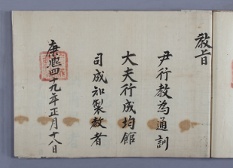 教旨
尹行教爲通訓
大夫行成均館
司成知製教者
康熙四十九年正月十八日